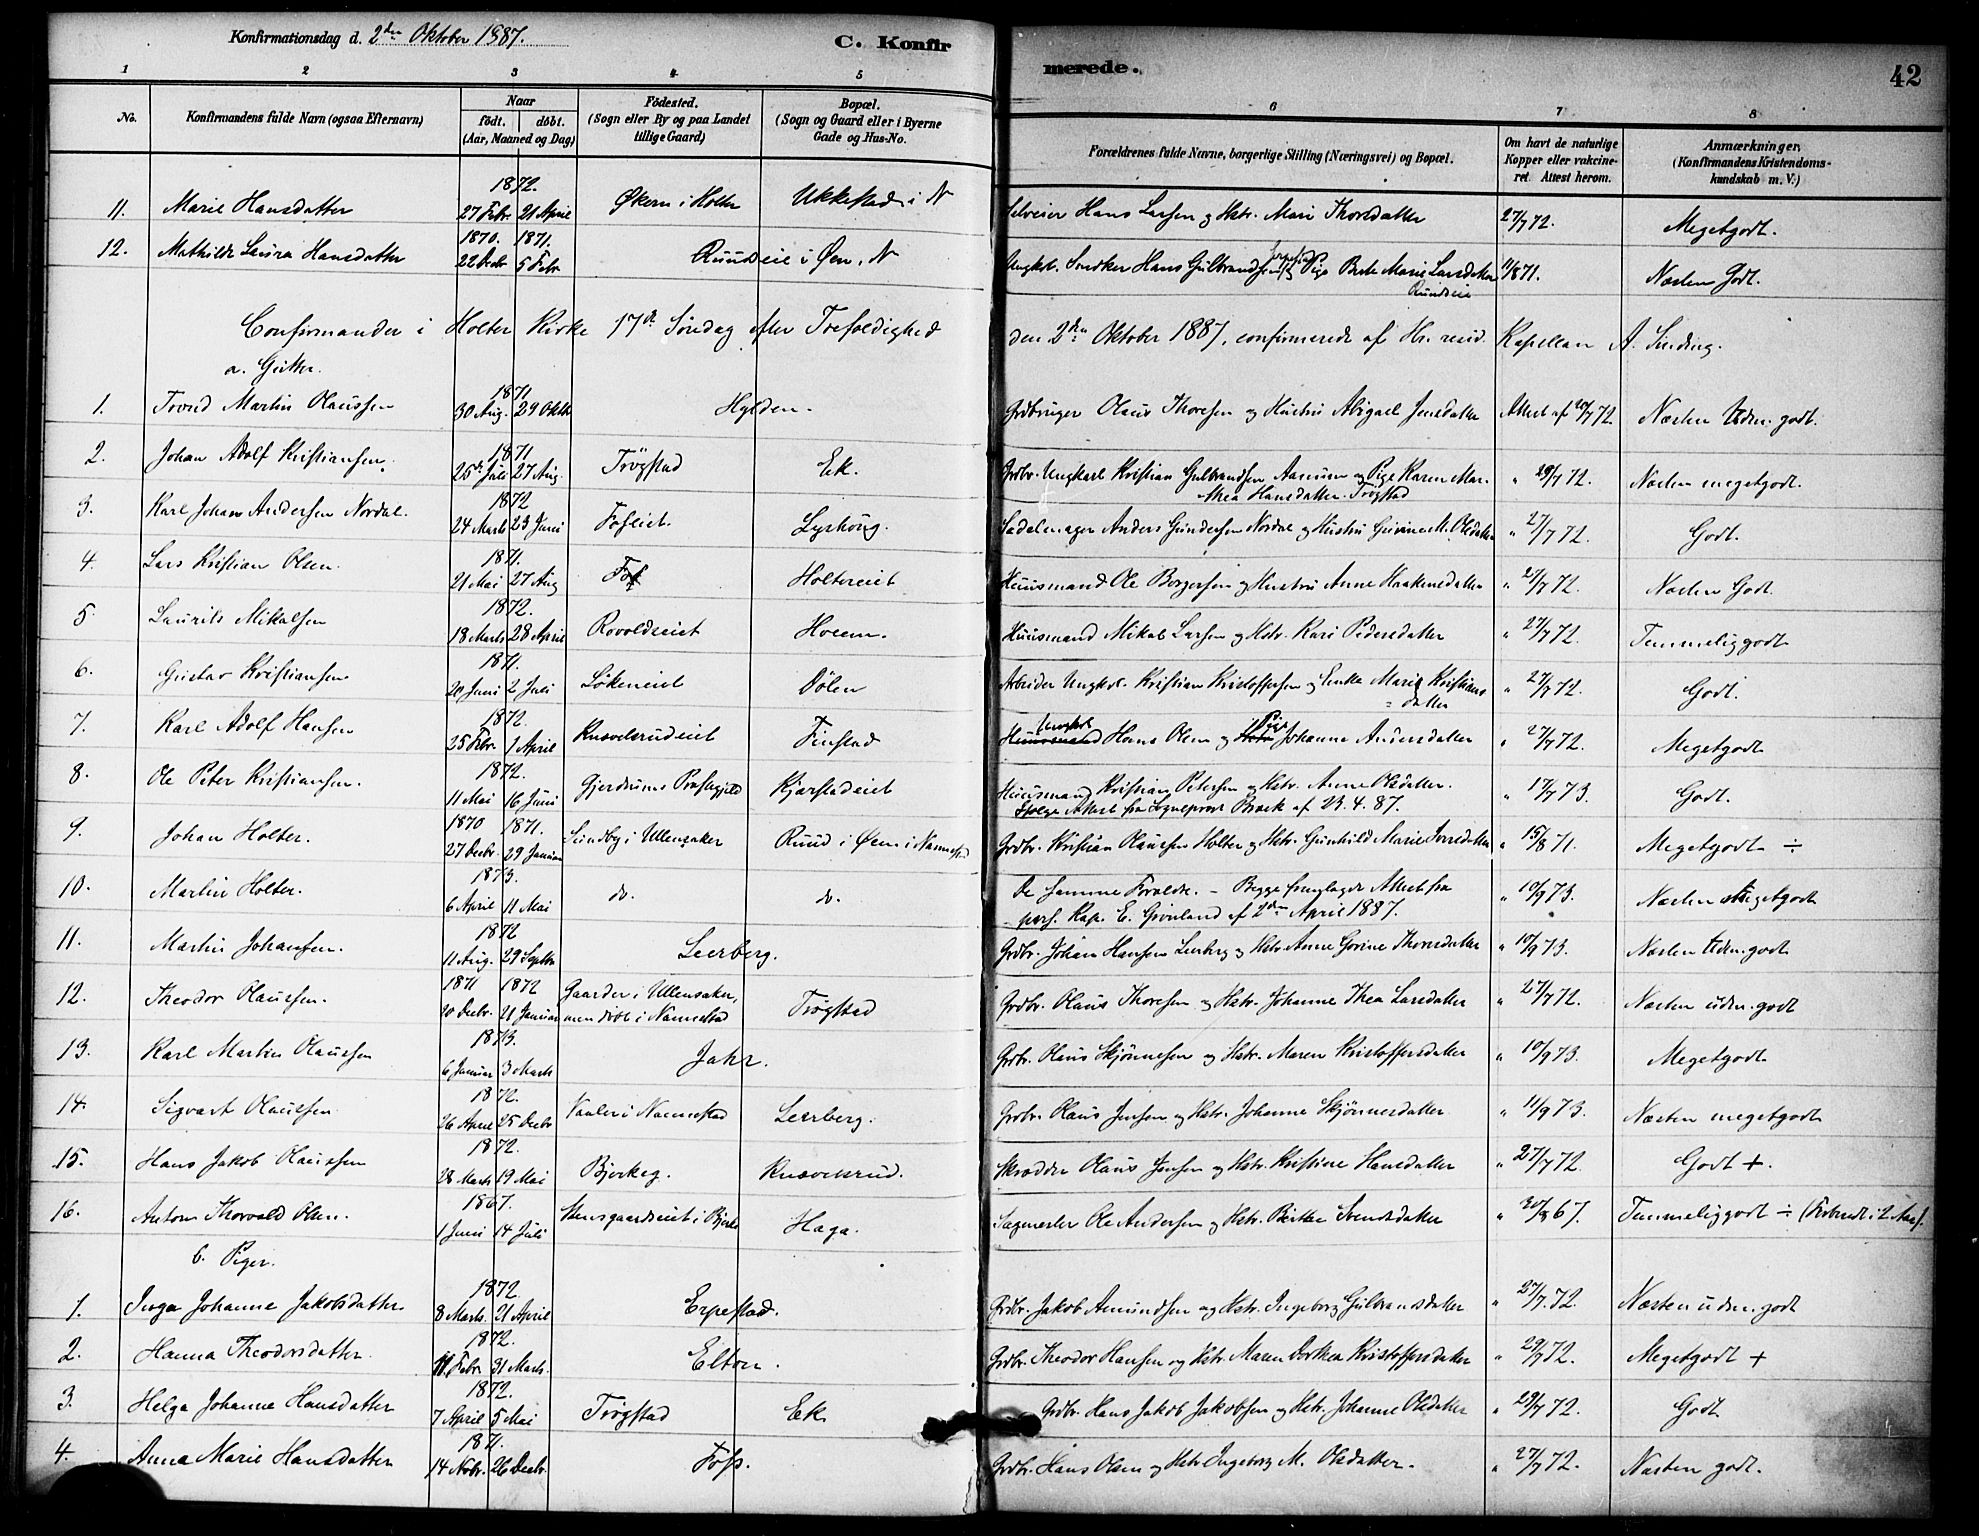 Konfirmationsdag d. 2den Oktober 1887. C. Konfirmerede. 42
1 2 3 4 5 6 7 8
No. Konfirmandens fulde Navn (ogsaa Efternavn) Naar født. døbt. (Aar, Maaned og Dag) Fødested. (Sogn eller By og paa Landet tillige Gaard) Bopæl. (Sogn og Gaard eller i Byerne Gade og Hus-No. Forældrenes fulde Navne, borgerlige Stilling (Næringsvei) og Bopæl. Om havt de naturlige Kopper eller vakcineret. Attest herom. Anmærkninger. (Konfirmandens Kristendomskundskab m. V.)
11. Marie Hansdatter 1872. 27 Febr. 21 April Økern i Holter Ukkestad i N Selveier Hans Larsen og Hstr. Mari Thorsdatter 27/7 72. Megetgodt.
12. Mathilde Laura Hansdatter 1870. 22 Decbr 1871. 5 Febr Ruudseie i Øen. N Ungk. Snedker Hans Gulbrandsen Pige Berte Marie Larsdatter Ruudseie 71. Næsten Godt.
Confirmander i Holter Kirke 17de Søndag efter Trefoldighed den 2den Oktober 1887, confirmerede af Hr. resid. Kapellan A. Sinding.
a. Gutter.
1. Trond Martin Olaussen 1871 30 Aug. 29 Oktbr Hylden. Grdbruger Olaus Thoresen og Hustru Abigael Jensdatter Attest af 20/7 72 Næsten Udm. godt.
2. Johan Adolf Kristiansen. 1871 25de Juli 27 Aug. Trögstad Ek. Grdbr. Ungkarl Kristian Gulbrandsen og Pige Karen Mar. Thea Hansdatter Trögstad " 29/7 72. Næsten megetgodt.
3. Karl Johan Andersen Nordal. 1872 24 Marts 23 Juni Fosseiet. Lyshoug. Sadelmager Anders Gundersen Nordal og Hustru M. Olsdatter " 27/7 72. Godt.
4. Lars Kristian Olsen. 1871. 21 Mai 27 Aug Holtereiet Huusmand Ole Borgersen og Hustru Anne Haakensdatter " 27/7 72. Næsten Godt.
5. Laurits Mikalsen 1872. 18 Marts 28 April Rovoldseiet Holum. Huusmand Mikal Larsen og Hstr. Kari Pedersdatter " 27/7 72. Temmeliggodt
6. Gustav Kristiansen 1871. 20 Juni 2 Juli Lökeneiet Dölen Arbeider Ungkrl. Kristian Kristoffersen og Enke Marie Kristiansdatter " 27/7 72. Godt.
7. Karl Adolf Hansen 1872. 25 Febr. 1 April Knaveksrudeiet Finstad Ungkrl Hans Olsen og Pige Johanne Andersdatter " 27/7 72. Megetgodt
8. Ole Peter Kristiansen. 1872. 11 Mai 16 Juni Gjerdrums Præstegjeld Kjærstadeiet Huusmand Kristian Petersen og Hstr. Anne Olsdatter. Ifølge Attest fra Sogneprest Brock af 23.4.87. " 17/7 73. Godt.
9. Johan Holter. 1870 27 Decbr. 1871. 29 Januar Sundby i Ullensaker Ruud i Øen i Nannestad Grdbr. Kristian Olaussen Holter og Hstr. Gunhild Marie " 15/8 71. Megetgodt ÷
10. Martin Holter. 1873. 6 April 11 Mai do. do. De samme Forældre. - Begge fremlagde Attest fra pers. Kap. E. Grönland af 2den April 1887. " 10/9 73. Næsten Megetgodt
11. Martin Johansen. 1872 11 Aug. 29 Septbr Leerberg. Grdbr. Johan Hansen Leerberg og Hstr. Anne Gorine Thorsdatter " 10/9 73. Næsten Udm. godt
12. Theodor Olaussen. 1871 20 Decbr. 1872 21 Januar Gaarder i Ullensaker, men döbt i Nannestad Trögstad Grdbr. Olaus Thoresen og Hstr. Johanne Thea Larsdatter " 27/7 72. Næsten udm. godt
13. Karl Martin Olaussen 1873. 6 Januar 3 Marts Jahr. Grdbr. Olaus Skjönnesen og Hstr. Maren Kristoffersdatter " 10/9 73. Megetgodt
14. Sigvart Olaussen 1872. 26 April 25 Decbr i Nannestad Leerberg. Grdbr. Olaus Jensen og Hstr. Johanne Skjönnesdatter " 11/9 73. Næsten megetgodt
15. Hans Jakob Olaussen 1872. 28 Marts 19 Mai Bjerkeg. Knaveksrud. Skrædder Olaus Jensen og Hstr. Kristine Hansdatter " 27/7 72. Godt +.
16. Anton Thorvald Olsen. 1867. 1 Juni 14 Juli Stensgaardseiet i Bjerke Haga. Sagmester Ole Andersen og Hstr. Berthe Svendsdatter " 67. Temmeliggodt ÷ (Forberedt i 2 Aar).
b. Piger.
1. Inga Johanne Jakobsdatter 1872. 8 Marts. 21 April Erpestad. Grdbr. Jakob Amundsen og Hstr. Ingeborg Gulbransdatter " 27/7.72. Næsten udm. godt
2. Hanna Theodorsdatter. 1872. 11. Febr. 31 Marts. Elton. Grdbr. Theodor Hansen og Hstr. Maren Dorthea Kristoffersdatter " 29/7 72. Megetgodt +
3. Helga Johanne Hansdatter 1872. 7 April 5 Mai Trögstad Ek Grdbr. Hans Jakob Jakobsen og Hstr. Johanne Olsdatter " 29/7 72. Godt
4. Anna Marie Hansdatter 1871. 14 Novbr. 26 Decbr. Foss. Grdbr. Hans Olsen og Hstr. Ingeborg M. Olsdatter. " 27/7 72. Næsten godt.